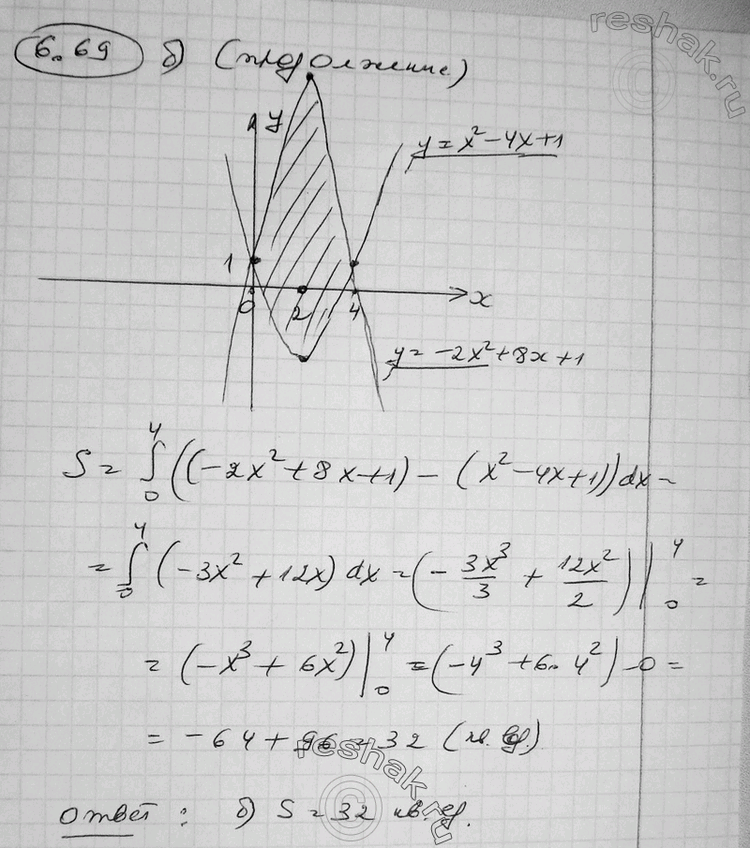 6.69 б) (продолжение)
y
y = x² - 4x + 1
1
0 2 4 x
y = -2x² + 8x + 1
S = ∫₀⁴ ((-2x² + 8x + 1) - (x² - 4x + 1)) dx =
= ∫₀⁴ (-3x² + 12x) dx = (-3x³/3 + 12x²/2) |₀⁴ =
= (-x³ + 6x²) |₀⁴ = (-4³ + 6·4²) - 0 =
= -64 + 96 = 32 (кв. ед.)
Ответ: б) S = 32 кв. ед.
reshak.ru
reshak.ru